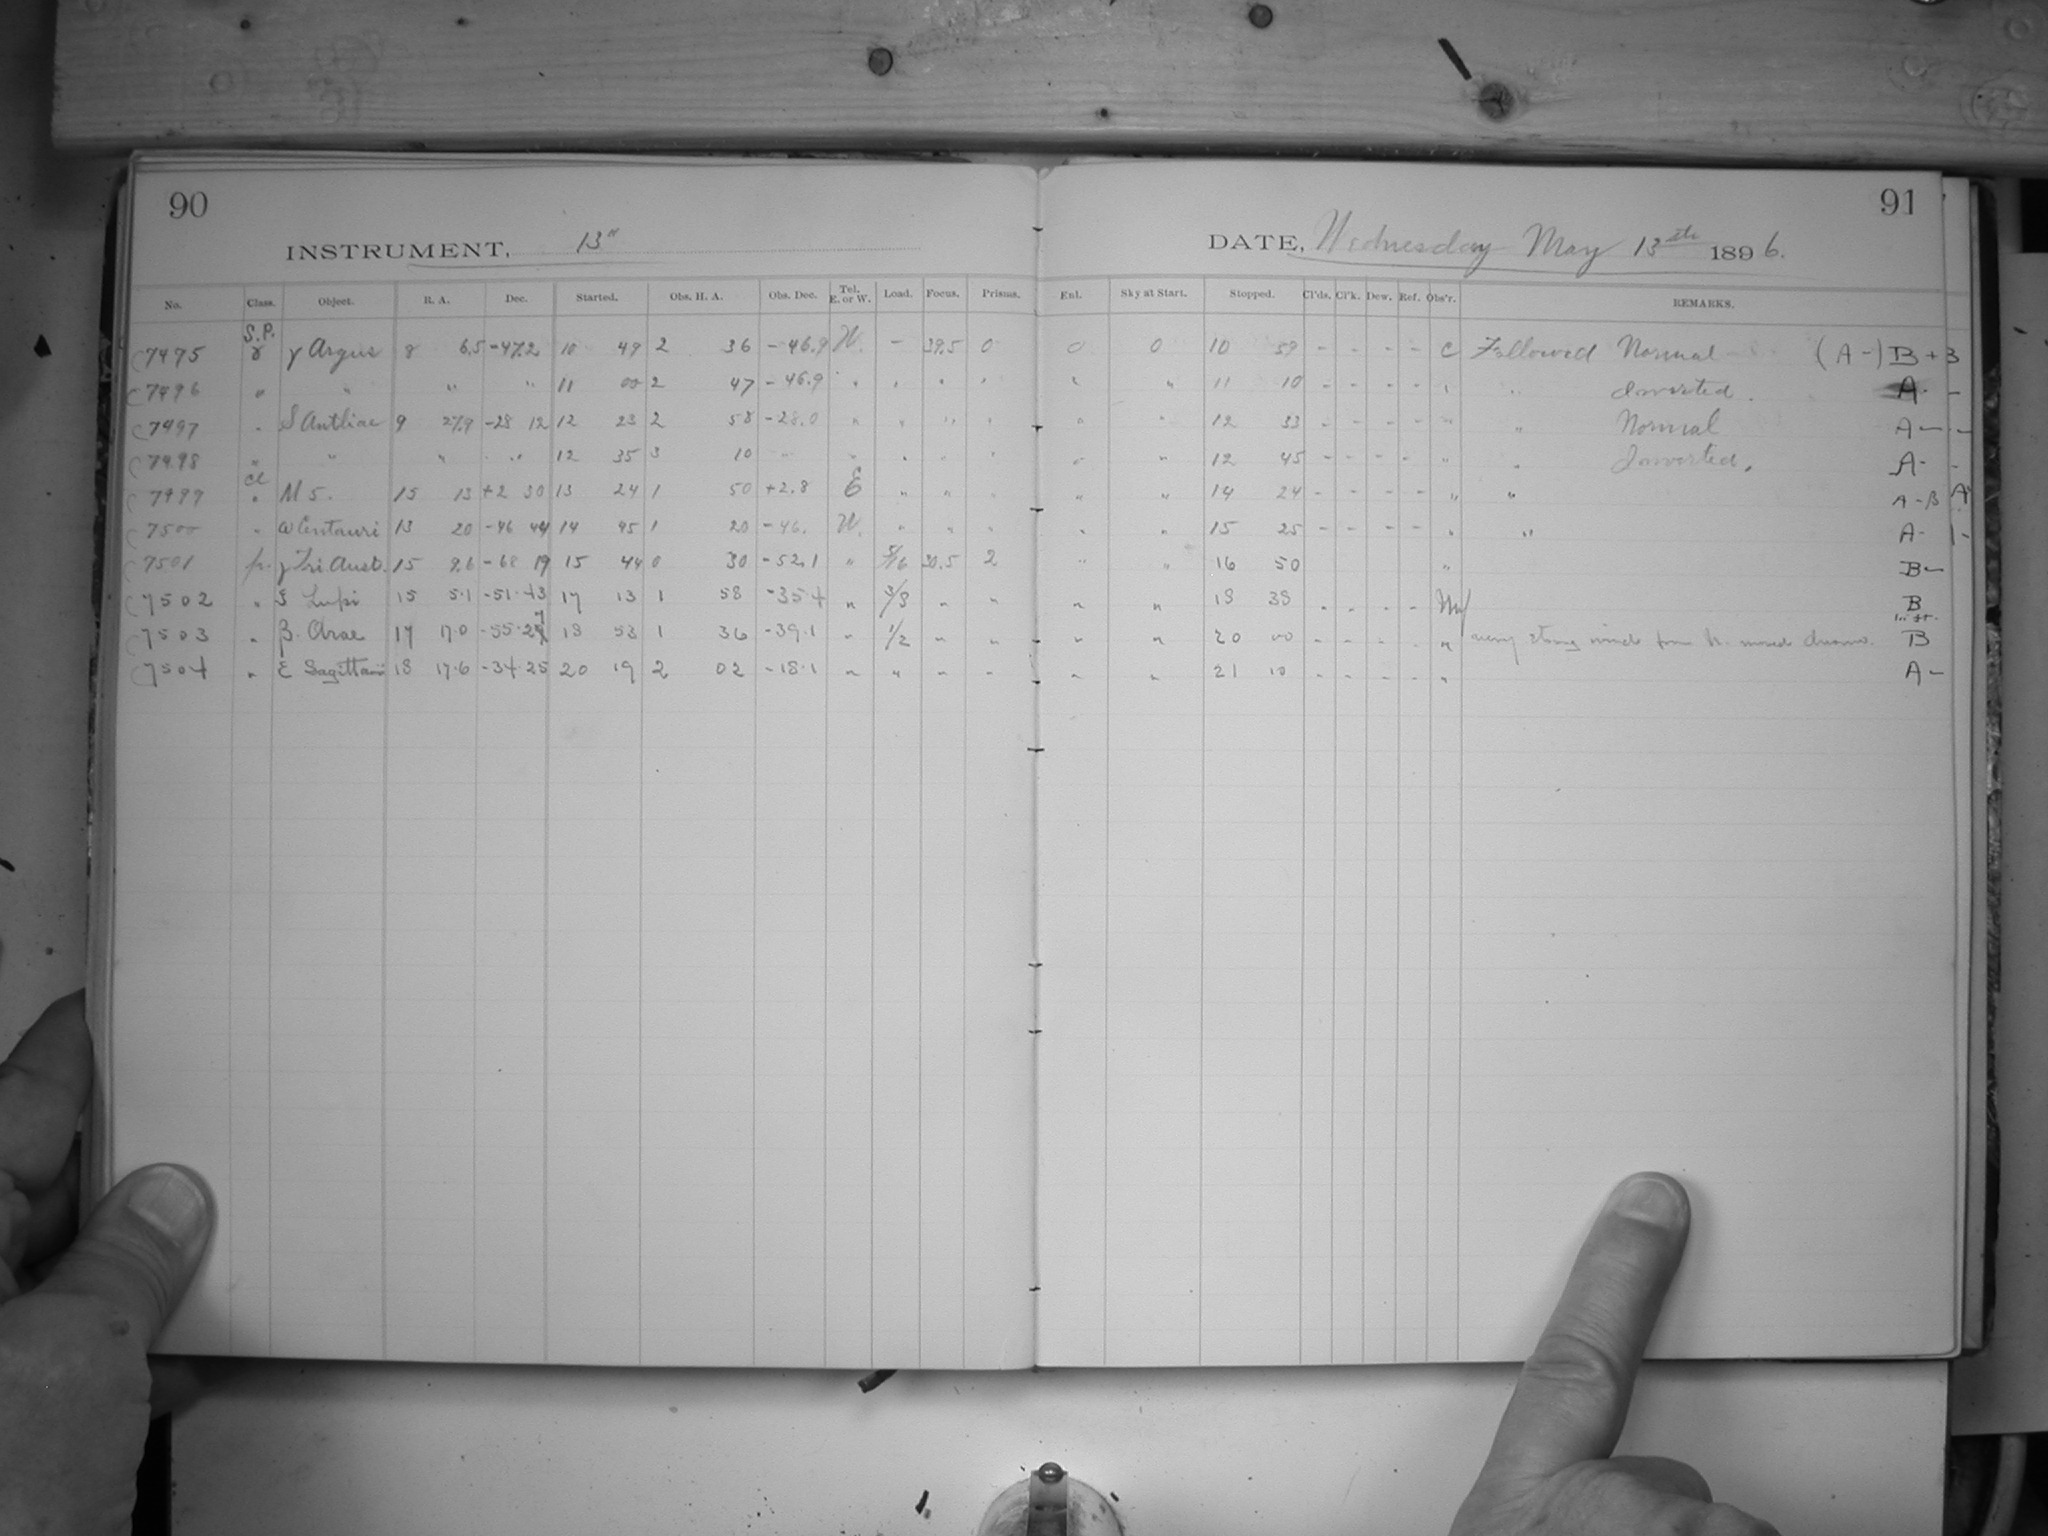 90
91
INSTRUMENT, 13"
DATE, Wednesday May 13th 1896.
No. Class. Object. R. A. Dec. Started. Obs. H. A. Obs. Dec. Tel. E. or W. Load. Focus. Prisms. Enl. Sky at Start. Stopped. Cl'ds. Cl'k. Dew. Ref. Obs'r. REMARKS.
S.P.
C7495 γ γ Argus 8 6.5 -47.2 10 49 2 36 -46.9 W. - 39.5 0 0 0 10 59 - - - - C Followed Normal (A-) B+3
C7496 " " " " 11 00 2 47 -46.9 " " " " " " 11 10 - - - - " " Inverted. A- -
C7497 " S Antliae 9 27.9 -28 12 12 23 2 58 -28.0 " " " " " " 12 33 - - - - " " Normal A- -
C7498 " " " " 12 35 3 10 " " " " " " " 12 45 - - - - " " Inverted. A- -
cl
C7499 " M 5. 15 13 +2 30 13 24 1 50 +2.8 E " " " " " 14 24 - - - - " " A-B A
C7500 " ω Centauri 13 20 -46 44 14 45 1 20 -46. W. " " " " " 15 25 - - - - " " A-
C7501 pr. γ Tri. Aust. 15 9.6 -68 19 15 44 0 30 -52.1 " 5/16 30.5 2 " " 16 50 " B-
C7502 " Lupi 15 5.1 -51.43 17 13 1 58 -35.4 " 3/8 " " " " 18 38 - - - - B
C7503 " β. Arae 17 17.0 18 53 1 36 -39.1 " 1/2 " " " " 20 00 - - - - " strong wind from moved B
C7504 " ε Sagittarii 18 17.6 -34.25 20 19 2 02 -18.1 " " " " " " 21 10 - - - - " A-